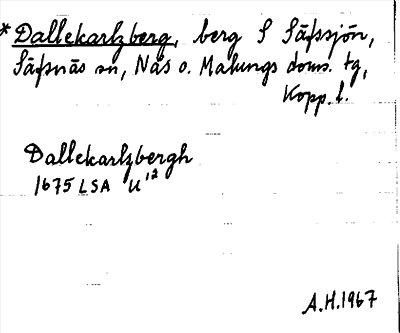 *Dallekarlzberg, berg S Säfssjön,
Säfsnäs sn, Nås o. Malungs doms. tg,
Kopp. l.
Dallekarlzbergh
1675 LSA U 12
A.H. 1967